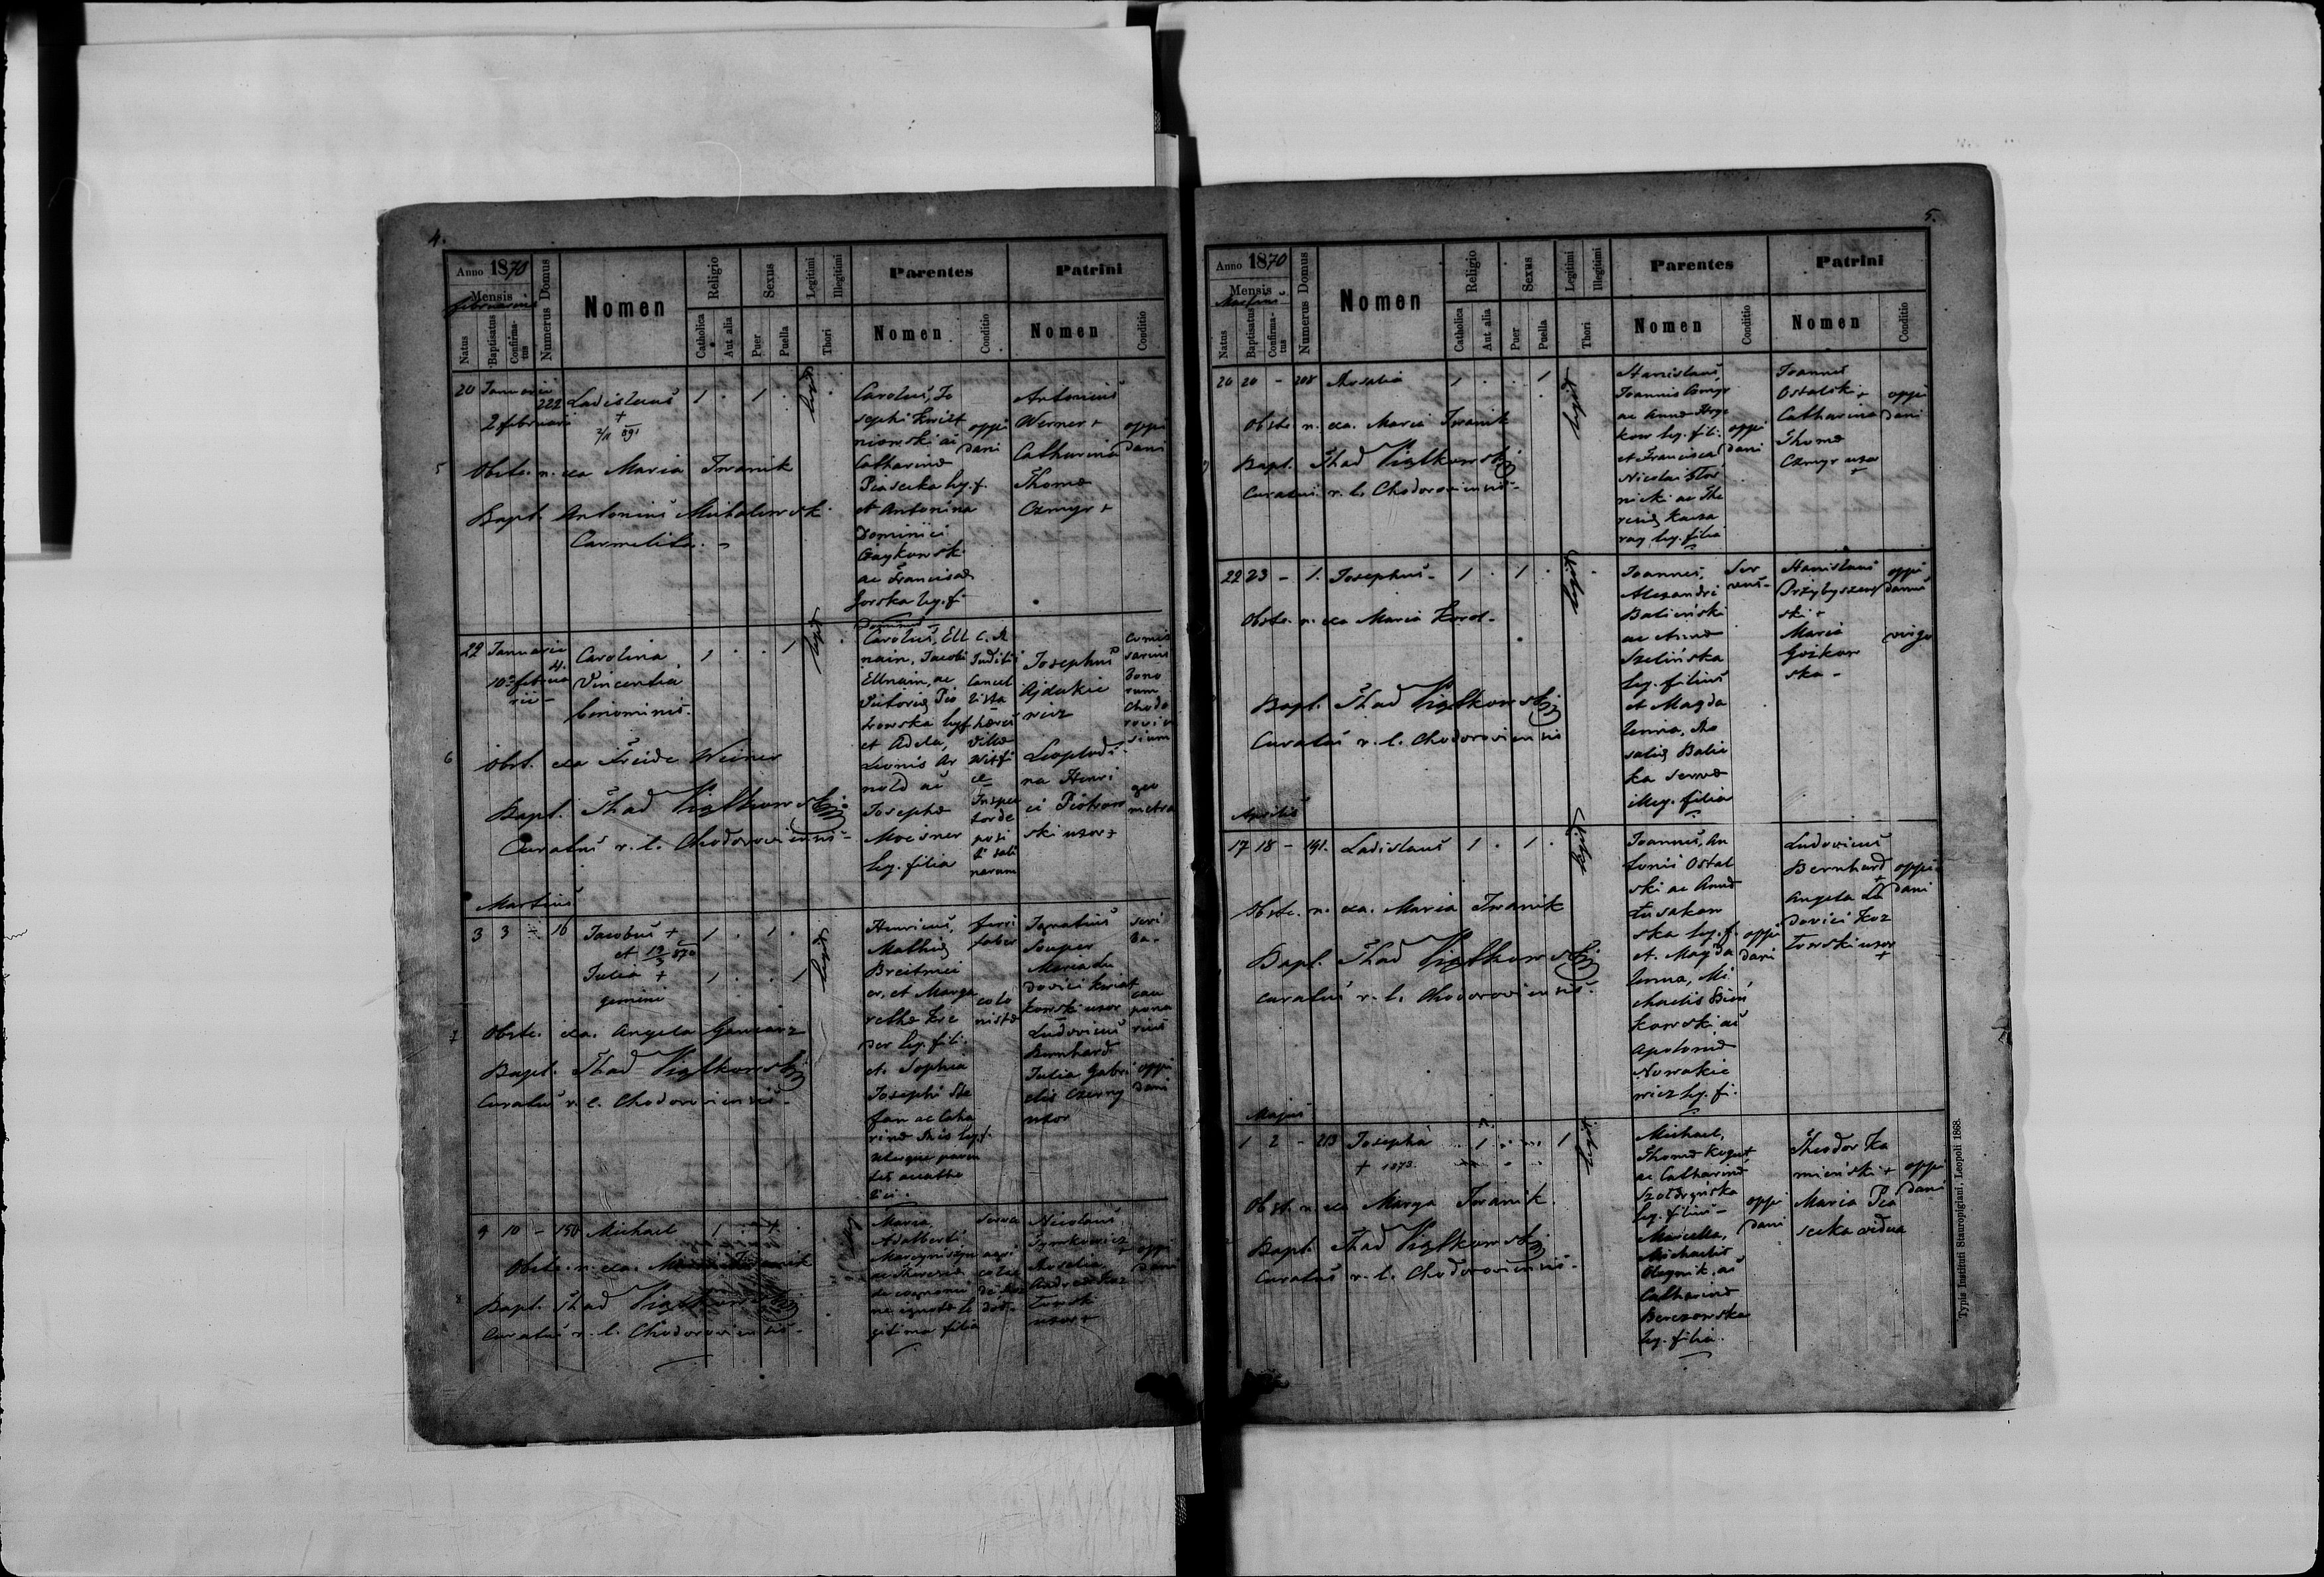 4.
Anno 1870
Mensis
februarius
Natus
Baptisatus
Confirmatus
Numerus Domus
Nomen
Religio
Catholica
Aut alia
Sexus
Puer
Puella
Legitimi
Illegitimi
Thori
Parentes
Nomen
Conditio
Patrini
Nomen
Conditio
20 Januarii 222 Ladislaus 1 . 1 .
2 februarii
5
Obste. n. exa Maria Iwanik
Bapt. Antonius Michalewski
Carmelita
Carolus, Jo
sephi
niowski ac
Catharina
Piasecka leg. f.
et Antonina
Dominici
Gaykowski
ac Francisca
Gorska leg. f.
oppi
dani
Antonius
Werner +
Catharina
Thoma
Czmyr +
oppi
dani
22 Januarii
10 februa
rii
Carolina
Vincentia
binominis.
1 . . 1
6
Obst. exa Freide Weiner
Bapt. Thad Piątkowski
Curatus r. l. Chodoroviensis
Carolus, Ell
nain, Jacobi
Ellnain, ac
Victoria Pio
trowska leg. f.
et Adela,
Leonis Ar
nold ac
Josepha
Moesner
leg. filia
Josephus
Ajdukie
wicz
Leopoldi
na Henri
ci Piotrow
ski uxor +
comis
sarius
bono
rum
Chodo
rovien
sium
geo
metra
Martius
3 3 - 16 Jacobus + 1 . 1 .
Julia + 1 . . 1
gemini
7
Obste. exa. Angela
Bapt. Thad Piątkowski
Curatus r. l. Chodoroviensis
Henricus,
Mathia
Breitmei
er, et Marga
retha Kre
der leg. fil.
et Sophia
Josephi Ste
fan ac Catha
rina leg. f.
utergue paren
tes acatho
lici.
ferri
faber
colo
nista
Ignatius
Souper
Maria Lu
dovici Kwiat
kowski uxor
Ludovicus
Bernhard
Julia Gabri
elis Czerny
uxor
scri
ba.
cau
pona
rius
oppi
dani
9 10 - 150 Michael 1
Obste. n. exa. Maria Iwanik
8
Bapt. Thad Piątkowski
Curatus r. l. Chodoroviensis
Maria,
Adalberti
ac Theresia
de cognomi
ne ignota le
gitima filia
serva
Nicolaus
Tymkiewicz +
Rosalia
Andrea Koz
łowski
uxor +
oppi
dani
5.
Anno 1870
Mensis
Martius
Natus
Baptisatus
Confirmatus
Numerus Domus
Nomen
Religio
Catholica
Aut alia
Sexus
Puer
Puella
Legitimi
Illegitimi
Thori
Parentes
Nomen
Conditio
Patrini
Nomen
Conditio
20 20 - 208 Rosalia 1 . . 1
Obste. n. exa. Maria Iwanik
Bapt. Thad Piątkowski
Curatus r. l. Chodoroviensis
Stanislaus,
Joannis Czmyr
ac Anna
kow leg. fil.
et Francisca
Nicolai
nicki ac The
resia
ray leg. filia
oppi
dani
Joannes
Ostalski +
Catharina
Thoma
Czmyr uxor
+
oppi
dani
22 23 - 1. Josephus 1 . 1 .
Obste. n. exa Maria Korol
Bapt. Thad Piątkowski
Curatus r. l. Chodoroviensis
Joannes,
Alexandri
Baliński
ac Anna
Szelińska
leg. filius
et Magda
lenna, Ro
salia Balic
ka serva
illeg. filia
Ser
vus
Stanislaus
Przybyszew
ski +
Maria
Gozkow
ska
oppi
danus
virgo
Aprilis
17 18 - 191. Ladislaus 1 . 1 .
Obste. n. exa. Maria Iwanik
Bapt. Thad Piątkowski
Curatus r. l. Chodoroviensis
Joannes, An
tonii Ostal
ski ac Anna
Łusakow
ska leg. f.
et Magda
lenna, Mi
chaelis Bień
kowski ac
Apolonia
Nowakie
wicz leg. fi.
oppi
dani
Ludovicus
Bernhard
+
Angela Lu
dovici Koz
łowski uxor
+
oppi
dani
Majus
1 2 - 213 Josepha 1 1
+ 1873.
Obst. n. exa Marya Iwanik
Bapt. Thad Piątkowski
Curatus r. l. Chodoroviensis
Michael,
Thoma Kogut
ac Catharina
leg. filius
Marcella,
Michaelis
Oleynik, ac
Catharina
Berezowska
leg. filia.
oppi
dani
Theodor Ka
mieński +
Maria Pia
secka vidua
oppi
dani
Typis Instituti Stauropigiani, Leopoli 1868.